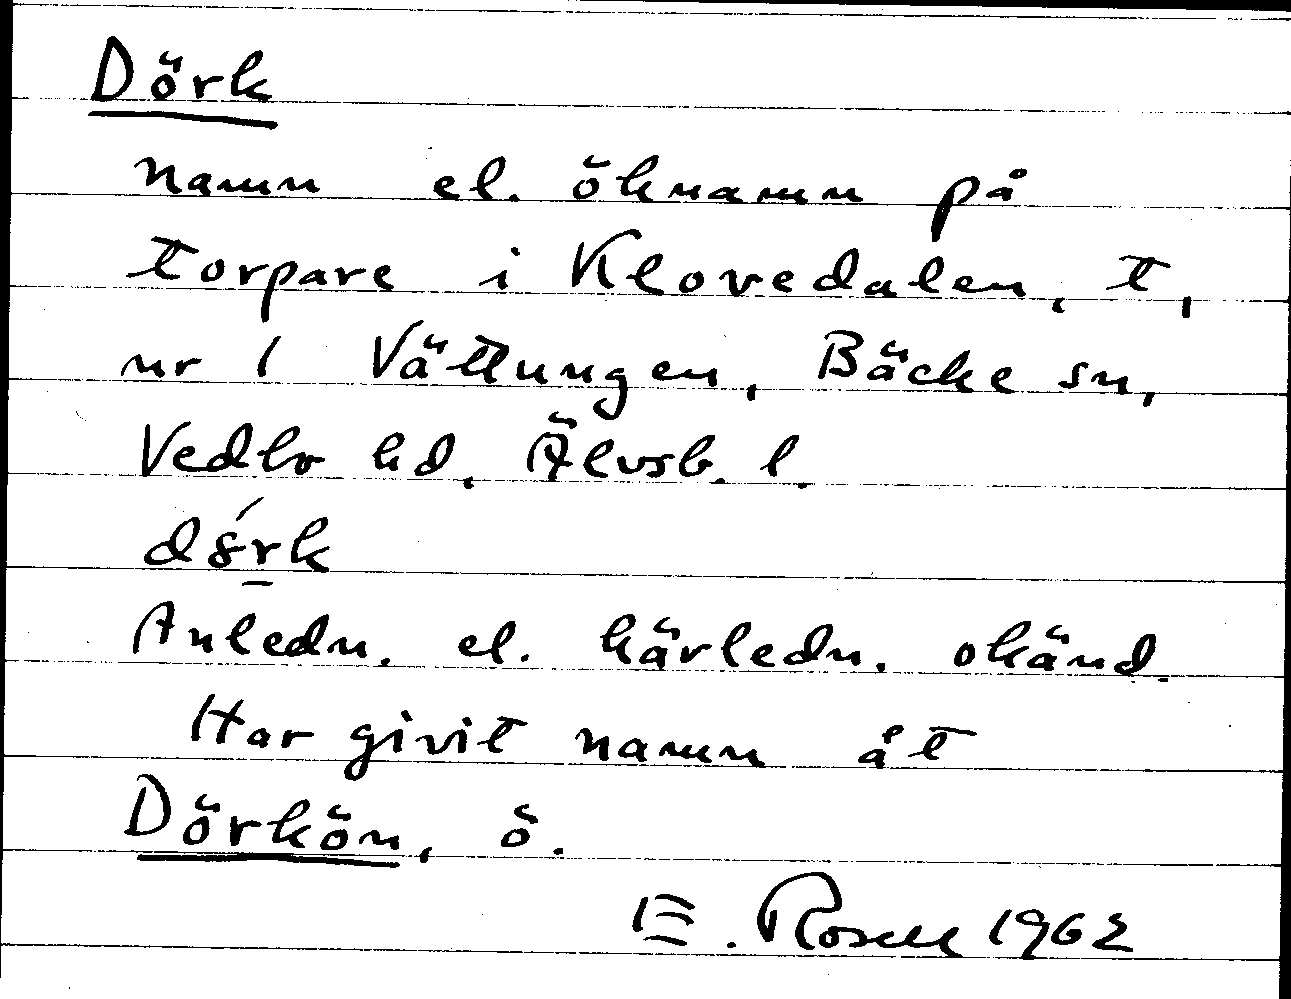 Dörk
Namn el. öknamn på
torpare i Klovedalen, t,
nr 1 Vättungen, Bäcke sn,
Vedbo hd, Älvsb. l.
Anledn. el. härledn. okänd.
Har givit namn åt
Dörkön, ö.
E. Rosell 1962